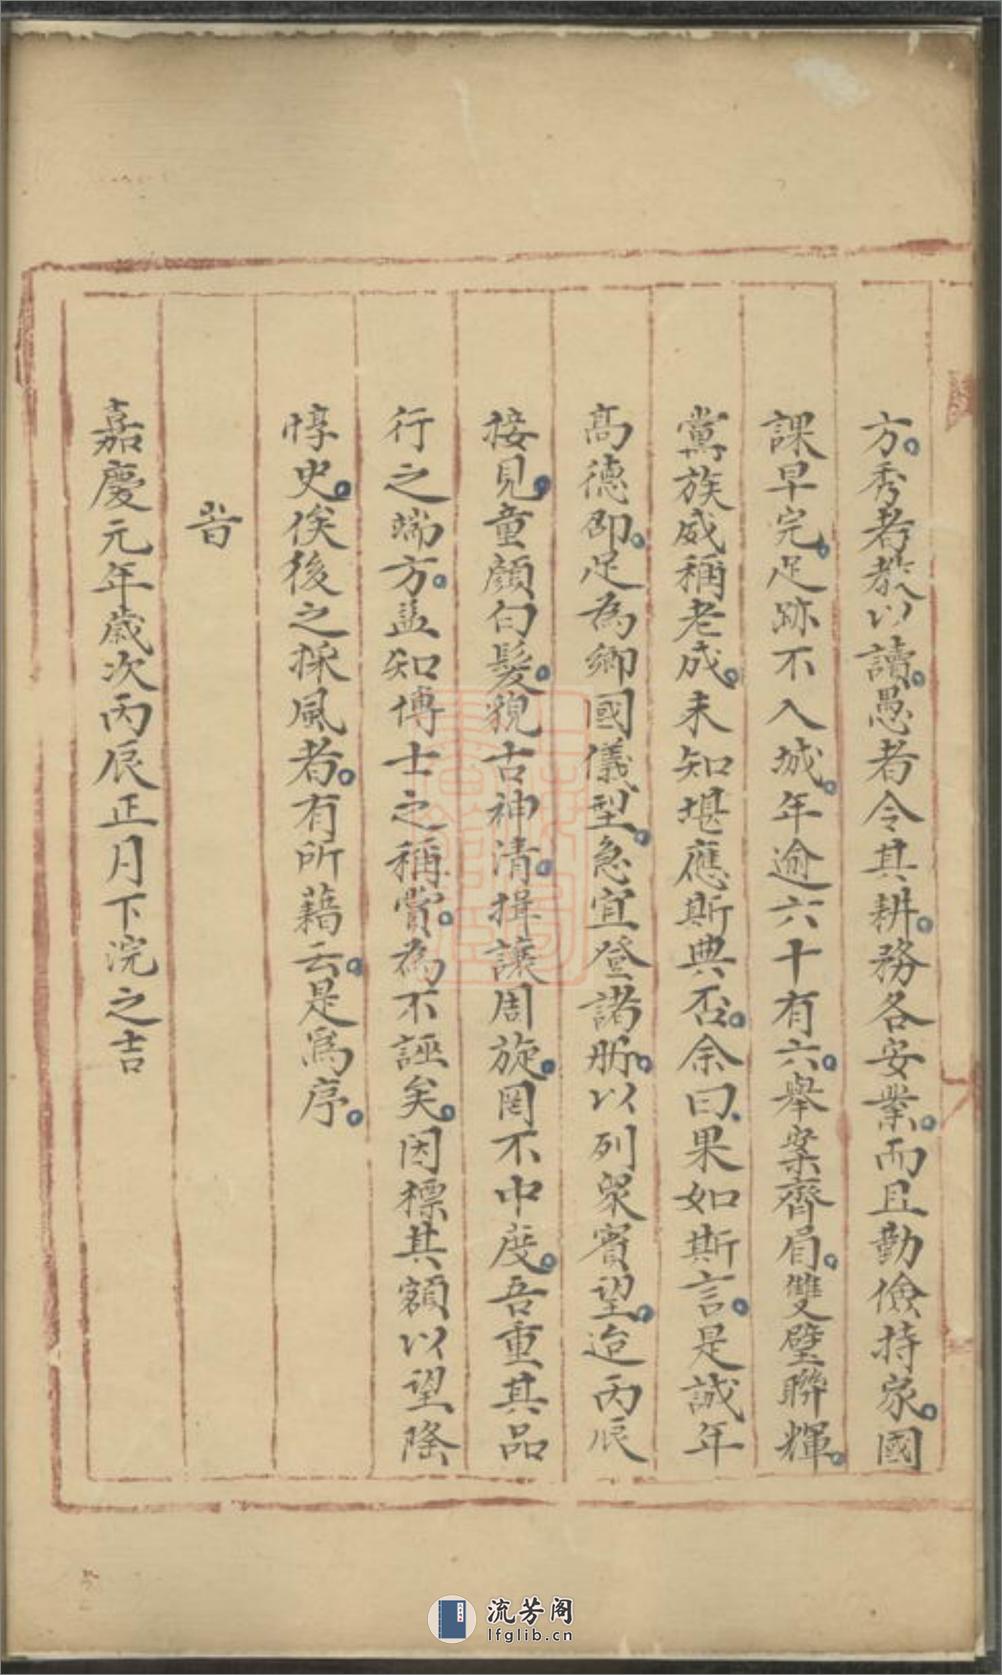 方秀者教以讀愚者令其耕務各安業而且勤儉持家國
課早完足跡不入城年逾六十有六舉案齊眉雙璧聯輝
黨族咸稱老成未知堪應斯典否余曰果如斯言是誠年
高德卲足為鄉國儀型急宜登諸所以列眾賓望迨丙辰
接見童顏白髮貌古神清揖讓周旋罔不中度吾重其品
行之端方益知博士之稱賞為不誣矣因標其額以望隆
惇史俟後之採風者有所藉云是為序
旹
嘉慶元年歲次丙辰正月下浣之吉
流芳阁
lfglib.cn